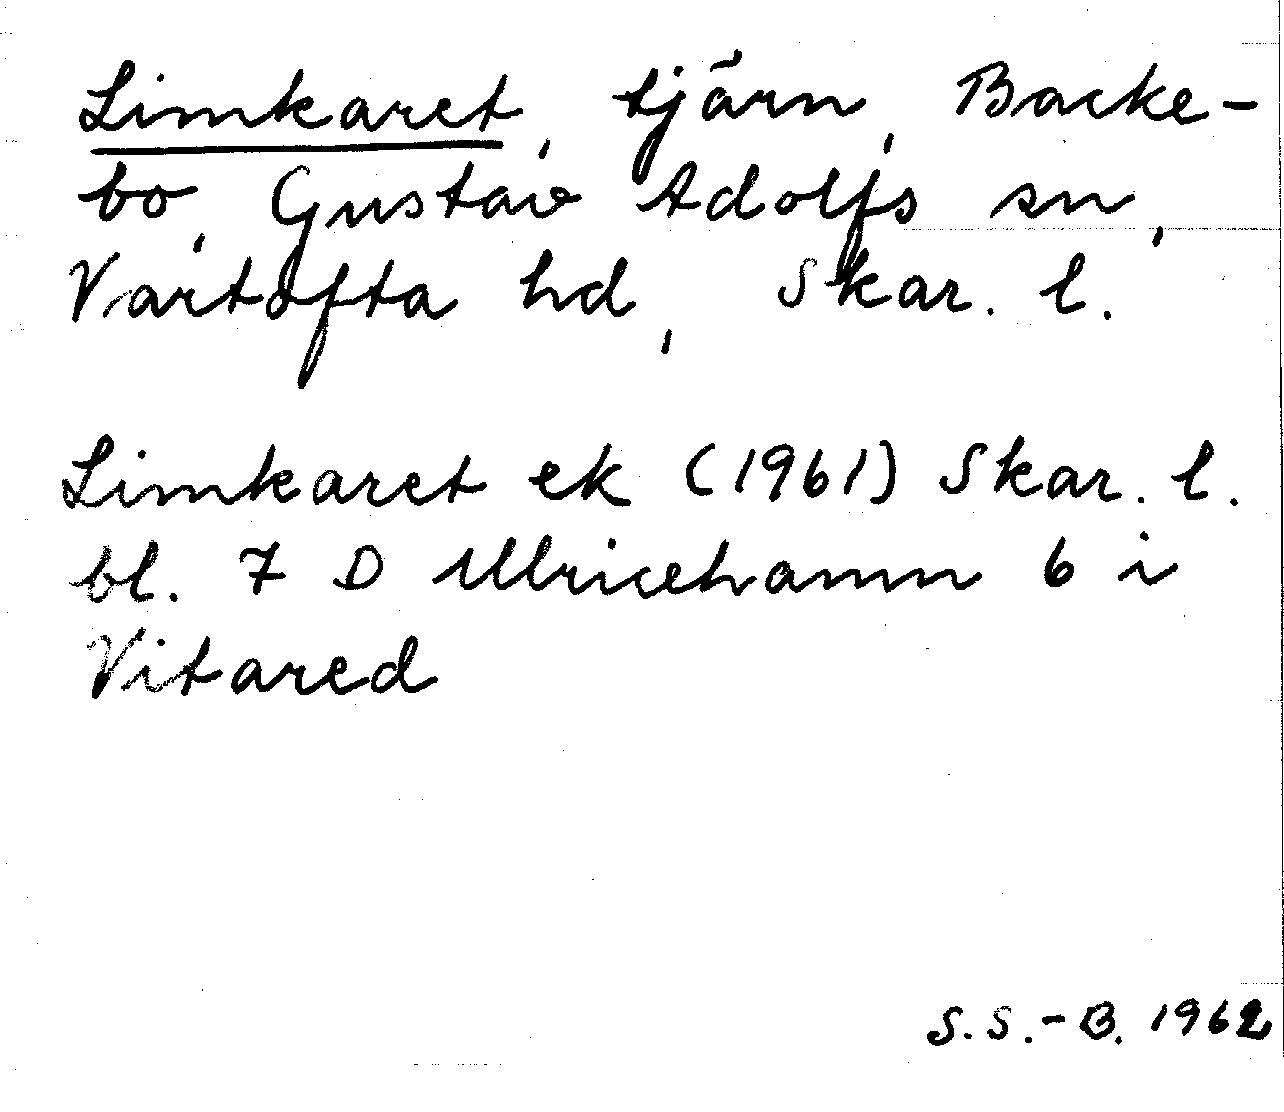 Limkaret, tjärn, Backe-
bo, Gustav Adolfs sn,
Vartofta hd, Skar. l.
Limkaret ek (1961) Skar. l.
bl. 7 D Ulricehamn 6 i
Vitared
S.S.-B. 1962